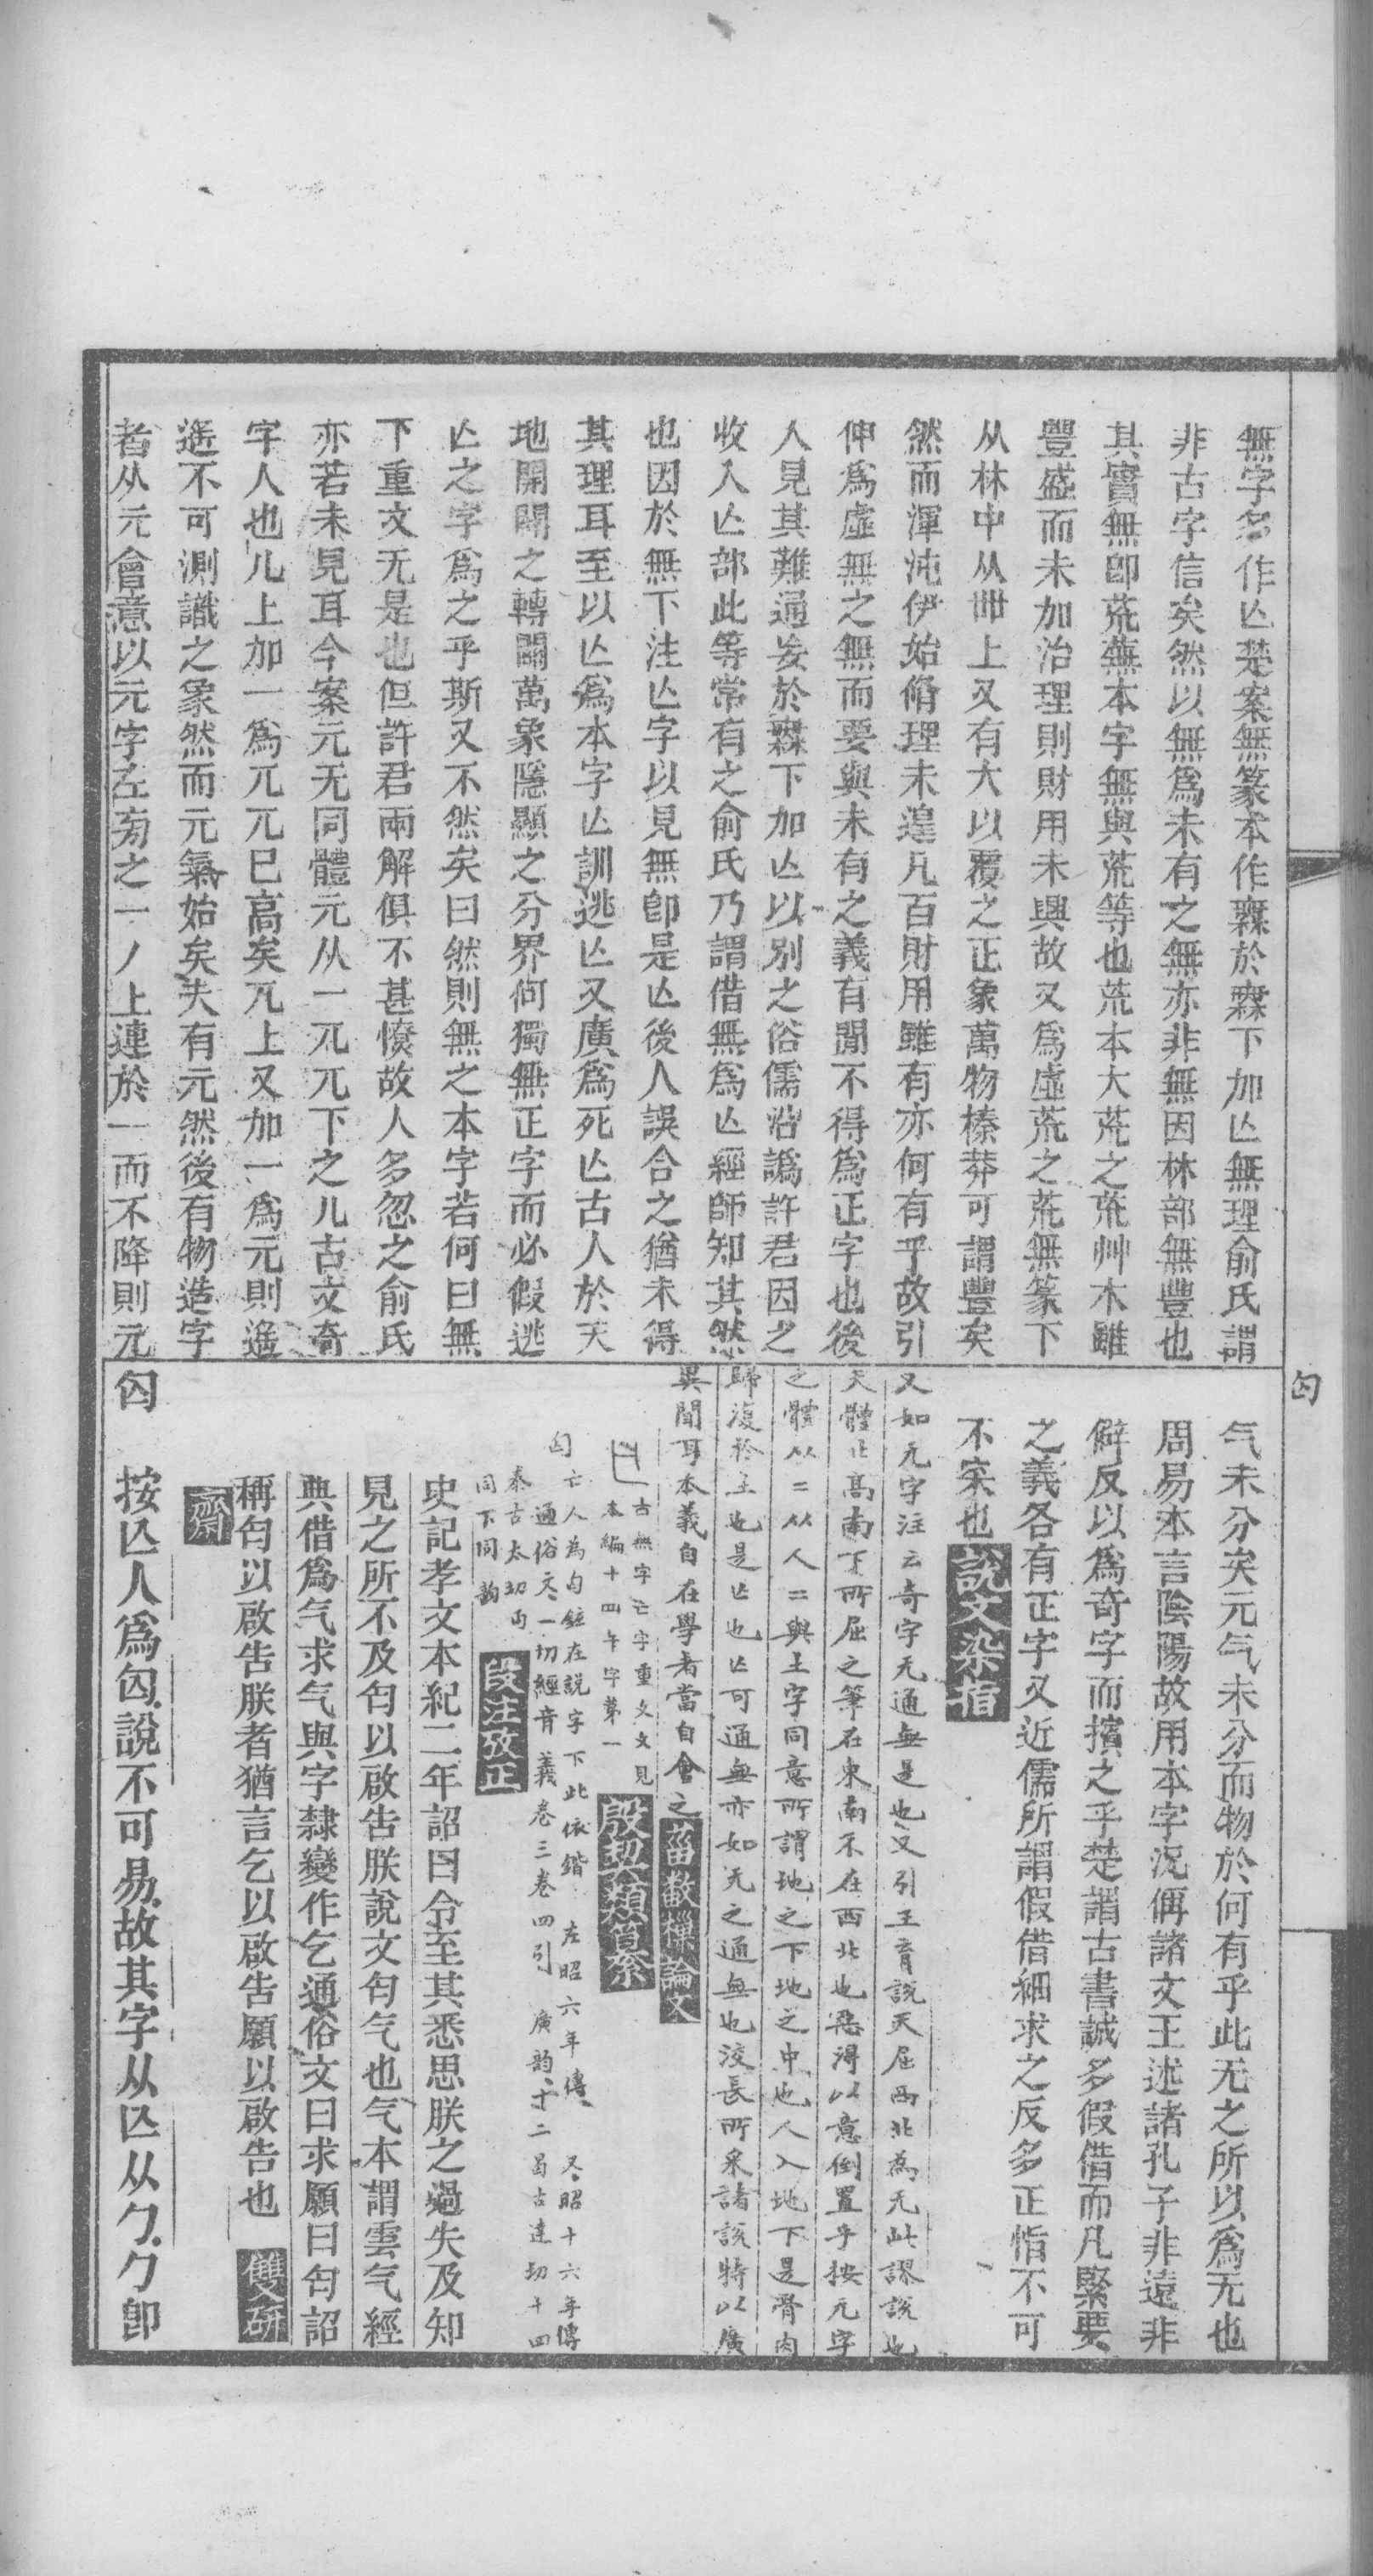 無字多作亾楚案無篆本作𣠮於𣞤下加亾無理俞氏謂
非古字信矣然以無爲未有之無亦非無因林部無豐也
其實無卽荒蕪本字無與荒等也荒本大荒之荒艸木雖
豐盛而未加治理則財用未興故又爲虛荒之荒無篆下
从林中从卌上又有大以覆之正象萬物榛莽可謂豐矣
然而渾沌伊始脩理未遑凡百財用雖有亦何有乎故引
伸爲虛無之無而要與未有之義有閒不得爲正字也後
人見其難通妄於𣞤下加亾以別之俗儒沿譌許君因之
收入亾部此等常有之俞氏乃謂借無爲亾經師知其然
也因於無下注亾字以見無卽是亾後人誤合之猶未得
其理耳至以亾爲本字亾訓逃亾又廣爲死亾古人於天
地開闢之轉關萬象隱顯之分界何獨無正字而必假逃
亾之字爲之乎斯又不然矣曰然則無之本字若何曰無
下重文无是也但許君兩解俱不甚憭故人多忽之俞氏
亦若未見耳今案元无同體元从一兀兀下之儿古文奇
字人也儿上加一爲兀兀已高矣兀上又加一爲元則遙
遙不可測識之象然而元氣始矣夫有元然後有物造字
者从元會意以元字左旁之一丿上連於一而不降則元
气未分矣元气未分而物於何有乎此无之所以爲无也
周易本言陰陽故用本字況偁諸文王述諸孔子非遠非
僻反以爲奇字而擯之乎楚謂古書誠多假借而凡緊要
之義各有正字又近儒所謂假借細求之反多正恉不可
不宷也 說文杂㨖
又如无字注云奇字无通無是也又引王育說天屈西北爲无此謬說也
天體北高南下所屈之筆在東南不在西北也惡得以意倒置乎按元字
之體从二从人二與土字同意所謂地之下地之中也人入地下是骨肉
歸復於土也是亾也亾可通無亦如无之通無也洨長所釆諸說特以廣
異聞耳本義自在學者當自會之 菑畝樸論文
古無字亡字重文文見
本編十四午字第一 殷契類纂
匃 亡人為匃鉉在說字下此依鍇 左昭六年傳 又昭十六年傳
通俗文 一切經音義卷三卷四引 廣韵十二曷古達切十四
泰古太切兩
同下同韵 段注攷正
史記孝文本紀二年詔曰令至其悉思朕之過失及知
見之所不及匄以啟告朕說文匄气也气本謂雲气經
典借爲气求气與字隸變作乞通俗文曰求願曰匄詔
稱匄以啟告朕者猶言乞以啟告願以啟告也 雙硏
齋
匃 按亾人爲匃說不可易故其字从亾从勹勹卽
匃